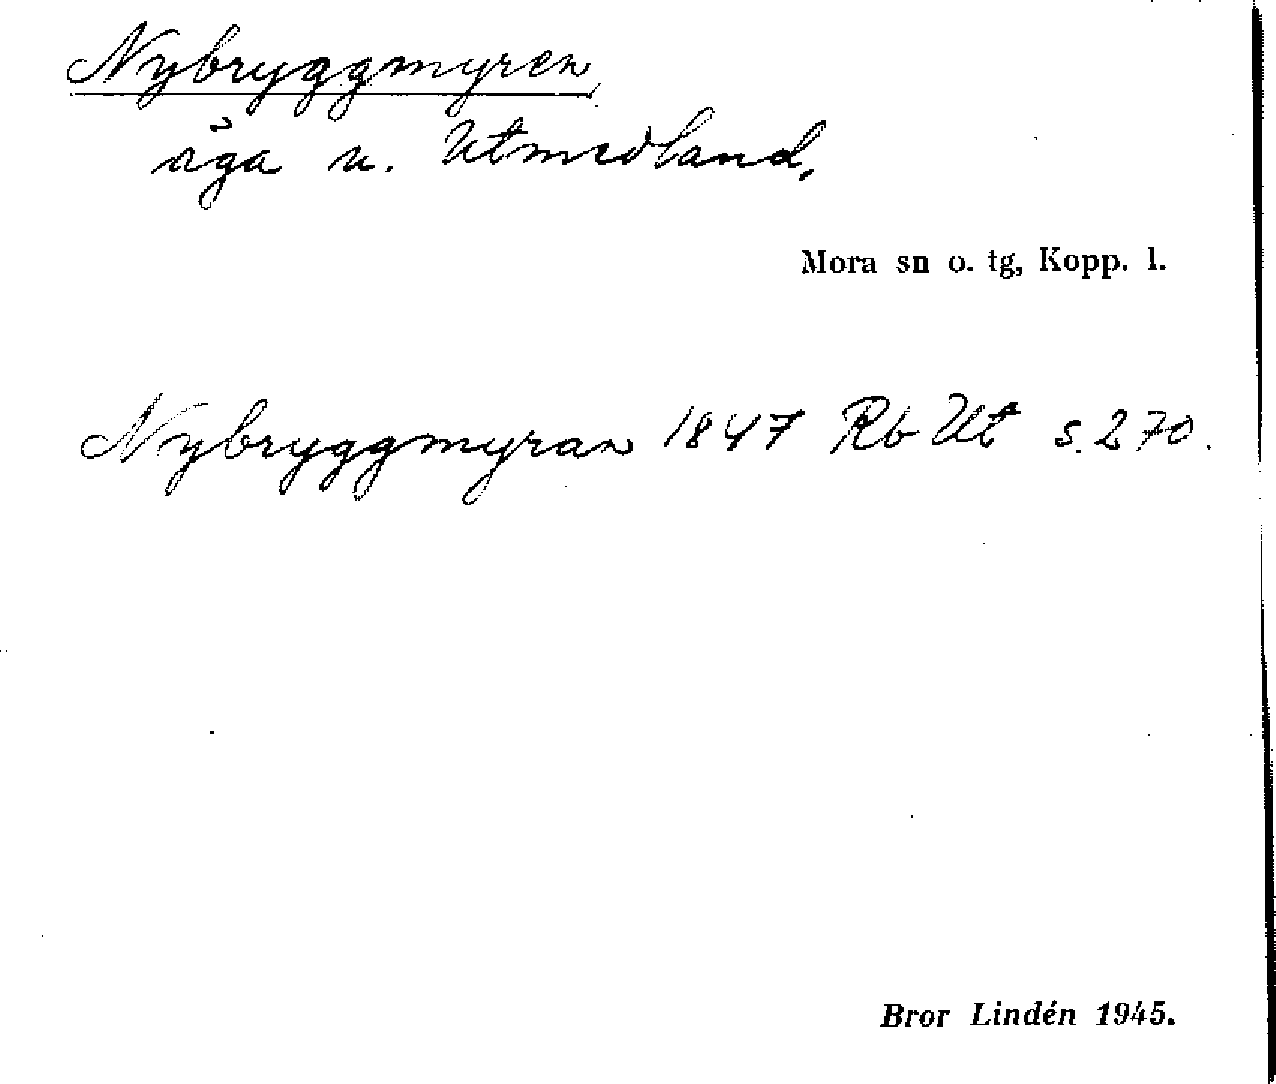 Nybryggmyren
äga u. Utmedland.
Mora sn o. tg, Kopp. l.
Nybryggmyran 1847 Rb Ut s. 270.
Bror Lindén 1945.